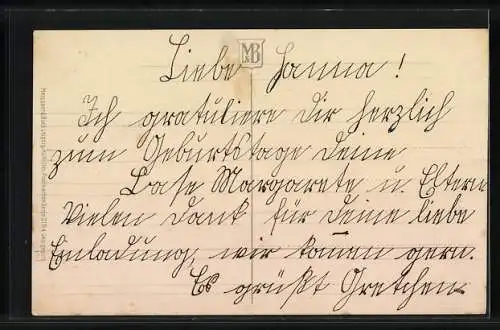 MB
Liebe Hanna!
Ich gratuliere Dir herzlich
zum Geburtstage Deine
Base Margarete u. Eltern
Vielen Dank für Deine liebe
Einladung, wir komen gern.
Es grüßt Gretchen.